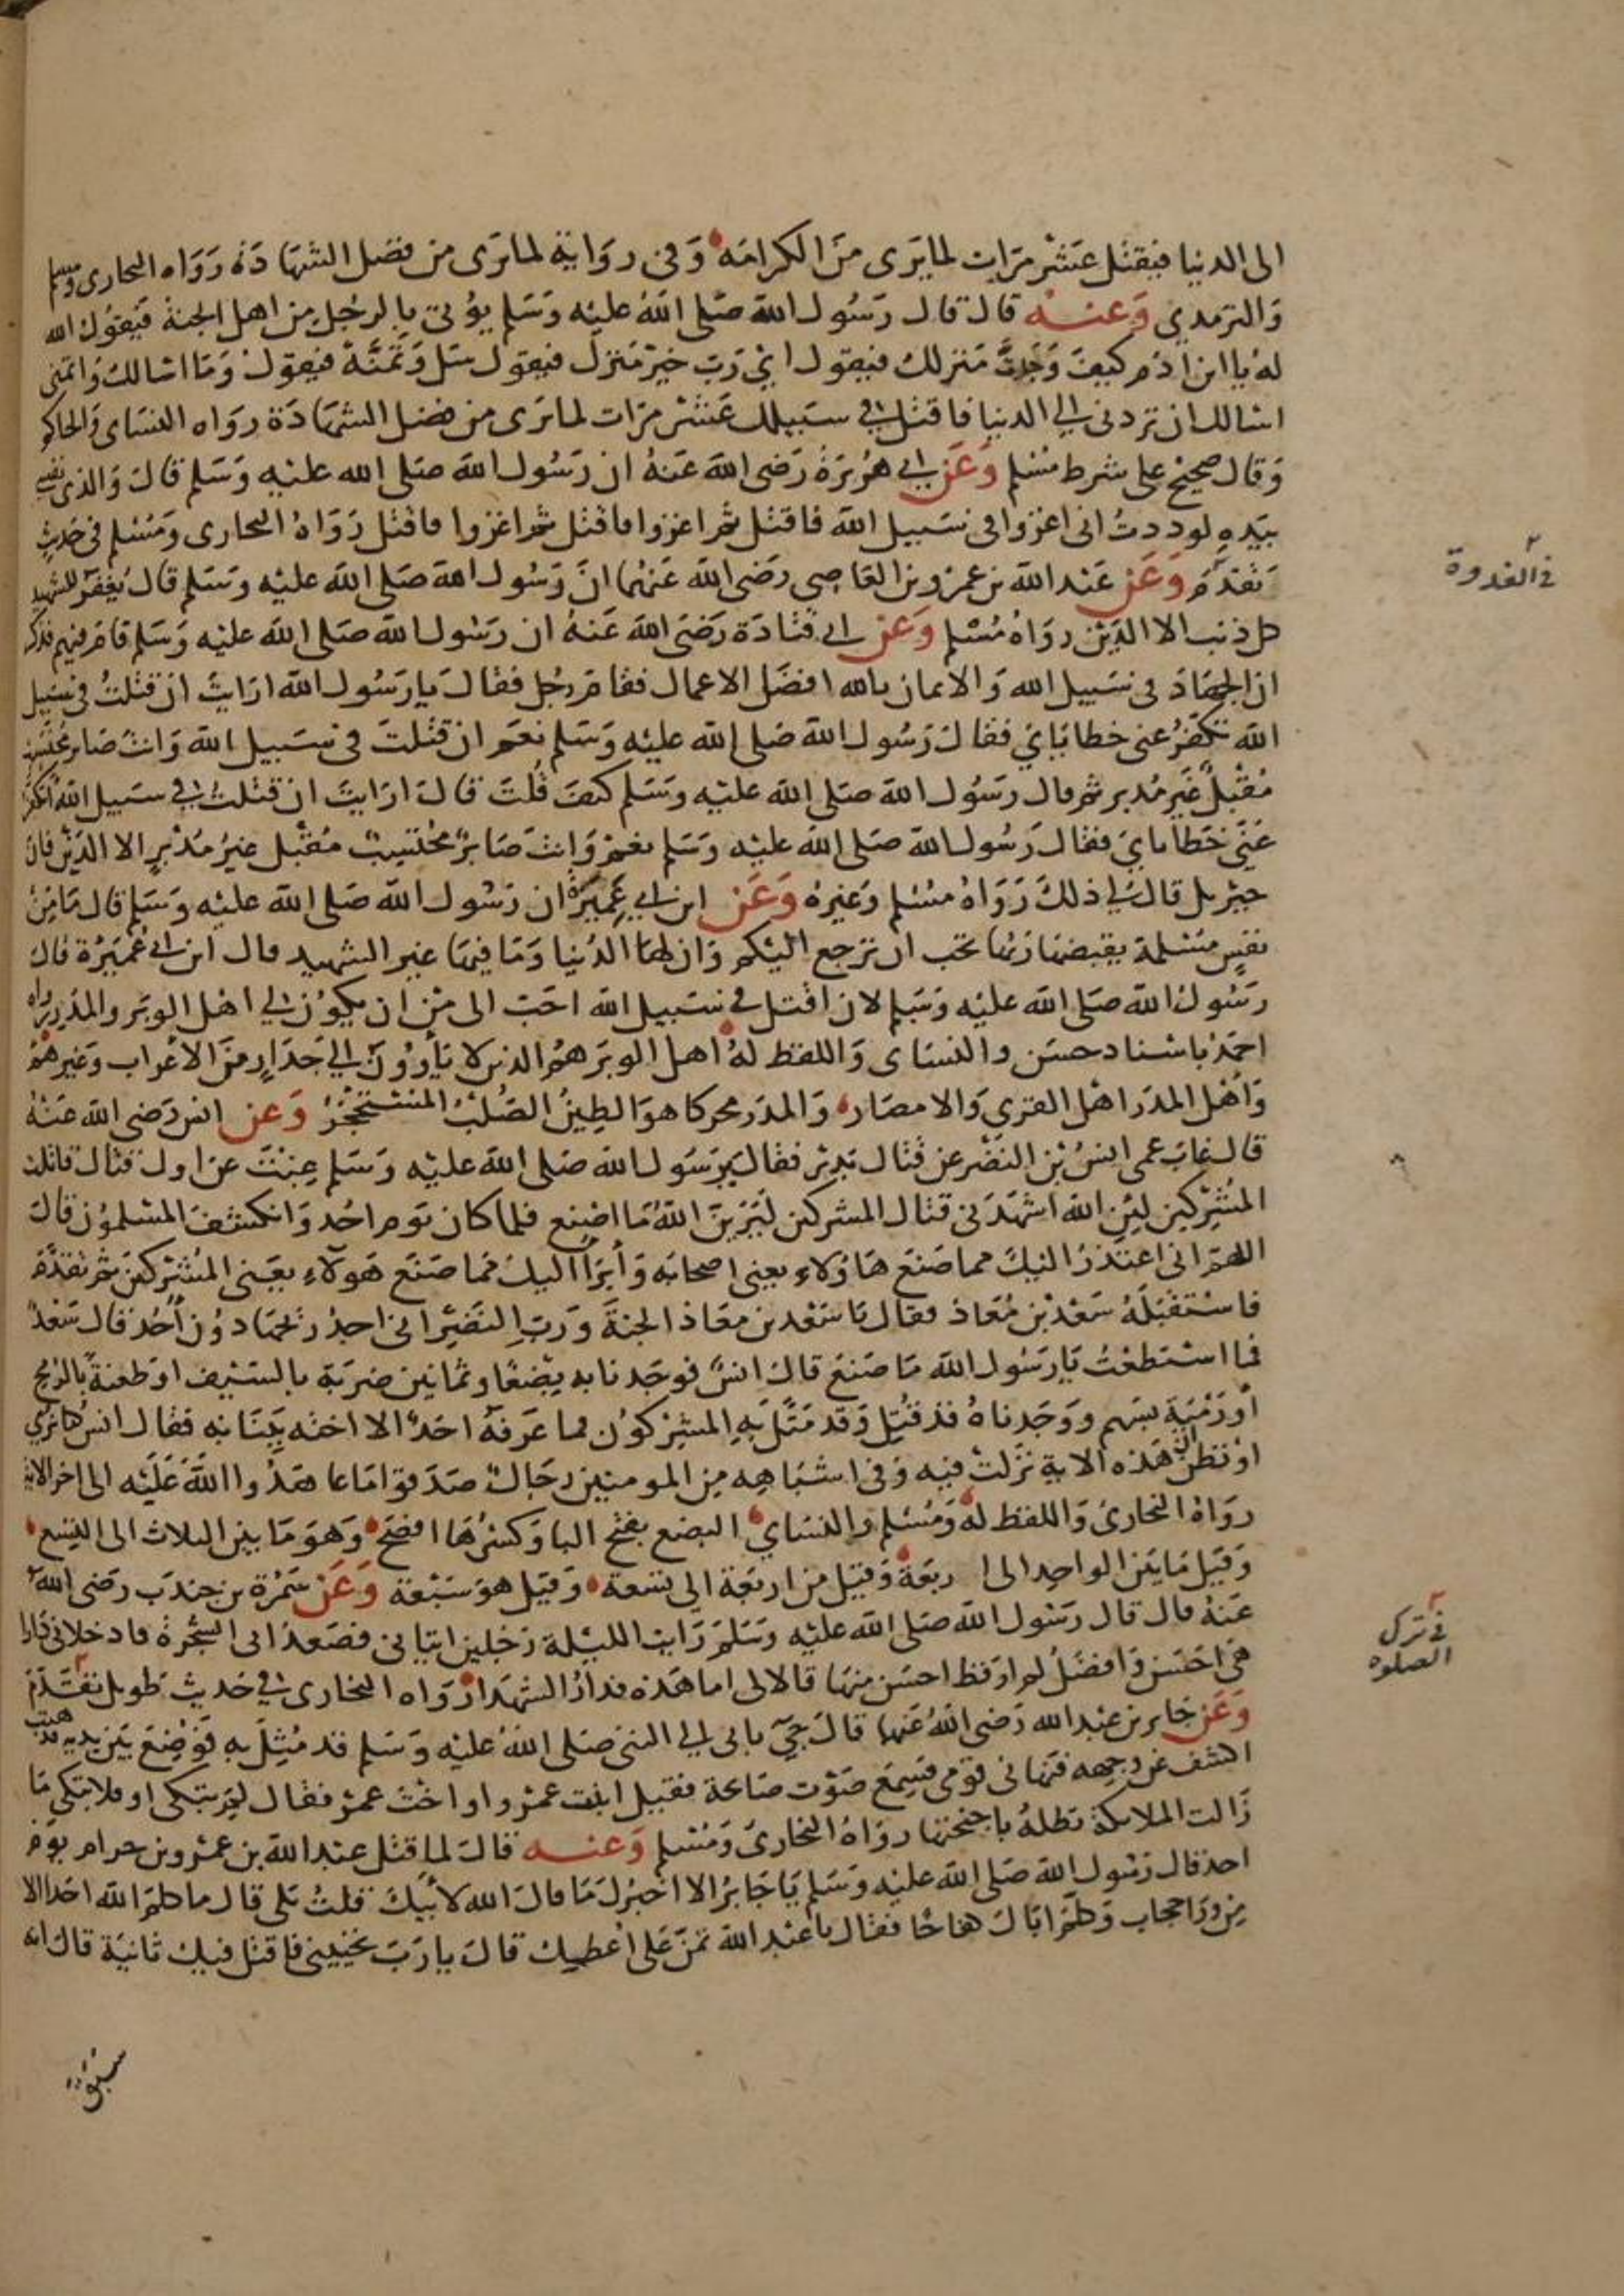 الى الدنيا فيقتل عشر مرات لما يرى من الكرامة وفى رواية لما يرى من فضل الشهادة رواه البخارى ومسلم
والترمذي وعنه قال قال رسول الله صلى الله عليه وسلم يؤتى بالرجل من اهل الجنة فيقول الله
له يا ابن ادم كيف وجدت منزلك فيقول اي رب خير منزل فيقول سل وتمنه فيقول وما اسالك واتمنى
اسالك ان تردنى الى الدنيا فاقتل في سبيلك عشر مرات لما يرى من فضل الشهادة رواه النساى والحاكم
وقال صحيح على شرط مسلم وعن ابي هريرة رضى الله عنه ان رسول الله صلى الله عليه وسلم قال والذى نفسى
بيده لوددت انى اغزوا فى سبيل الله فاقتل ثم اغزوا فاقتل ثم اغزوا فاقتل رواه البخارى ومسلم فى حديث
تقدم وعن عبد الله بن عمرو بن العاصى رضى الله عنهما ان رسول الله صلى الله عليه وسلم قال يغفر للشهيد
فى الغدوة
كل ذنب الا الدين رواه مسلم وعن ابى قتادة رضى الله عنه ان رسول الله صلى الله عليه وسلم قام فيهم فذكر
ان الجهاد فى سبيل الله والايمان بالله افضل الاعمال فقام رجل فقال يا رسول الله ارايت ان قتلت فى سبيل
الله تكفر عنى خطاياي فقال رسول الله صلى الله عليه وسلم نعم ان قتلت فى سبيل الله وانت صابر محتسب
مقبل غير مدبر ثم قال رسول الله صلى الله عليه وسلم كيف قلت قال ارايت ان قتلت في سبيل الله اتكفر
عني خطاياي فقال رسول الله صلى الله عليه وسلم نعم وانت صابر محتسب مقبل غير مدبر الا الدين فان
جبريل قال لي ذلك رواه مسلم وغيره وعن ابن ابي عميرة ان رسول الله صلى الله عليه وسلم قال ما من
نفس مسلمة يقبضها ربها تحب ان ترجع اليكم وان لها الدنيا وما فيها غير الشهيد قال ابن ابى عميرة قال
رسول الله صلى الله عليه وسلم لان اقتل في سبيل الله احب الى من ان يكون لي اهل الوبر والمدر رواه
احمد باسناد حسن والنساى واللفظ له اهل الوبر هم الذين لا يأوون الى جدار من الاعراب وغيرهم
واهل المدر اهل القرى والامصار والمدر محركا هو الطين الصلب المستحجر وعن انس رضى الله عنه
قال غاب عمى انس بن النضر عن قتال بدر فقال يا رسول الله صلى الله عليه وسلم غبت عن اول قتال قاتلت
المشركين لئن الله اشهدنى قتال المشركين ليرين الله ما اصنع فلما كان يوم احد وانكشف المسلمون قال
اللهم انى اعتذر اليك مما صنع هاؤلاء يعنى اصحابه وأبرأ اليك مما صنع هولاء يعنى المشركين ثم تقدم
فاستقبله سعد بن معاذ فقال يا سعد بن معاذ الجنة ورب النضر انى اجد ريحها دون أحد قال سعد
فما استطعت يا رسول الله ما صنع قال انس فوجدنا به بضعا وثمانين ضربة بالسيف او طعنة بالرمح
أو رمية بسهم ووجدناه قد قتل وقد مثل به المشركون فما عرفه احد الا اخته ببنانه فقال انس كنا نرى
او نظن ان هذه الاية نزلت فيه وفى اشباهه من المومنين رجال صدقوا ما عاهدوا الله عليه الى اخر الاية
رواه البخارى واللفظ له ومسلم والنساي البضع بفتح البا وكسرها افصح وهو ما بين الثلاث الى التسع
وقيل ما بين الواحد الى اربعة وقيل من اربعة الى تسعة وقيل هو سبعة وعن سمرة بن جندب رضى الله
عنه قال قال رسول الله صلى الله عليه وسلم رايت الليلة رجلين اتيانى فصعدا بى الشجرة فادخلانى دارا
فى ترك
الصلوة
هى احسن وافضل لم ار قط احسن منها قالا لى اما هذه فدار الشهدا رواه البخارى في حديث طويل تقدم
وعن جابر بن عبد الله رضى الله عنهما قال جي بابى الى النبى صلى الله عليه وسلم قد مثل به فوضع بين يديه فذهبت
اكشف عن وجهه فنهانى قومى فسمع صوت صائحة فقيل ابنت عمرو او اخت عمرو فقال لم تبكى او فلا تبكى ما
زالت الملائكة تظله باجنحتها رواه البخارى ومسلم وعنه قال لما قتل عبد الله بن عمرو بن حرام يوم
احد قال رسول الله صلى الله عليه وسلم يا جابر الا اخبرك ما قال الله لأبيك قلت بلى قال ما كلم الله احدا الا
من ورا حجاب وكلم اباك كفاحا فقال يا عبد الله تمن على اعطيك قال يا رب تحيينى فاقتل فيك ثانية قال انه
سبق